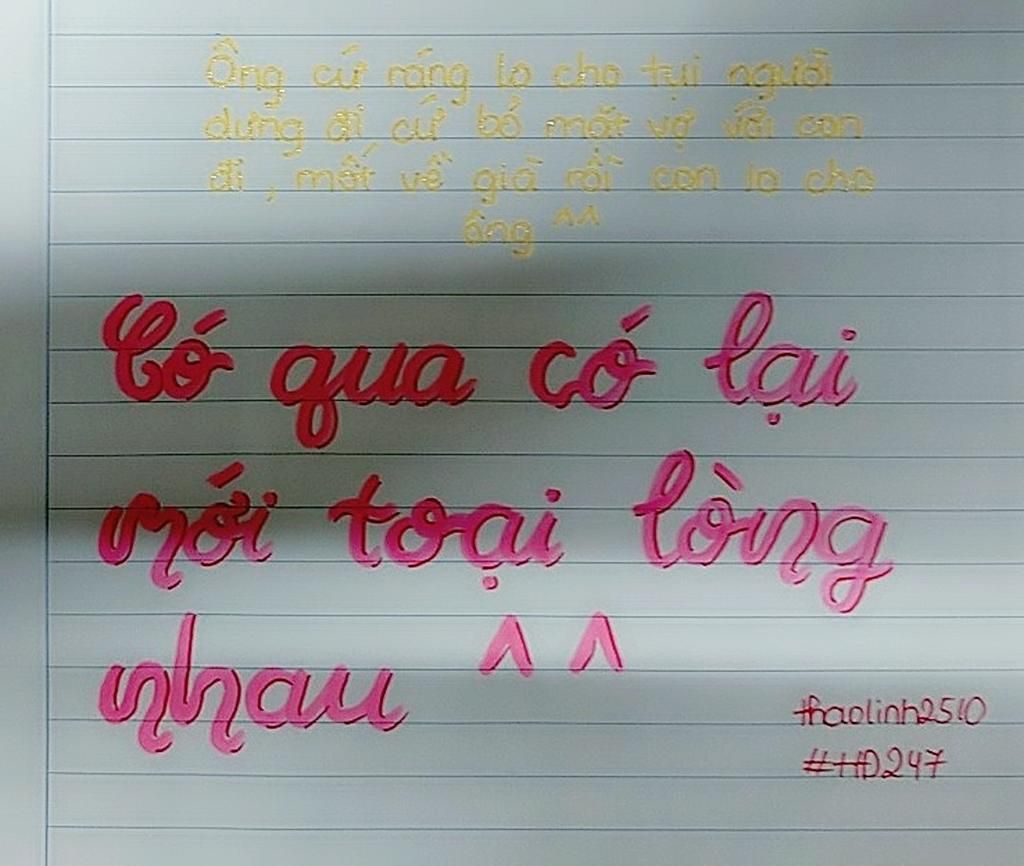 Ông cứ ráng lo cho tụi người
dưng đi cứ bỏ mặt vợ với con
đi , mốt về già rồi con lo cho
ông ^^
Có qua có lại
mới toại lòng
nhau ^^
thaolinh2510
#HD247